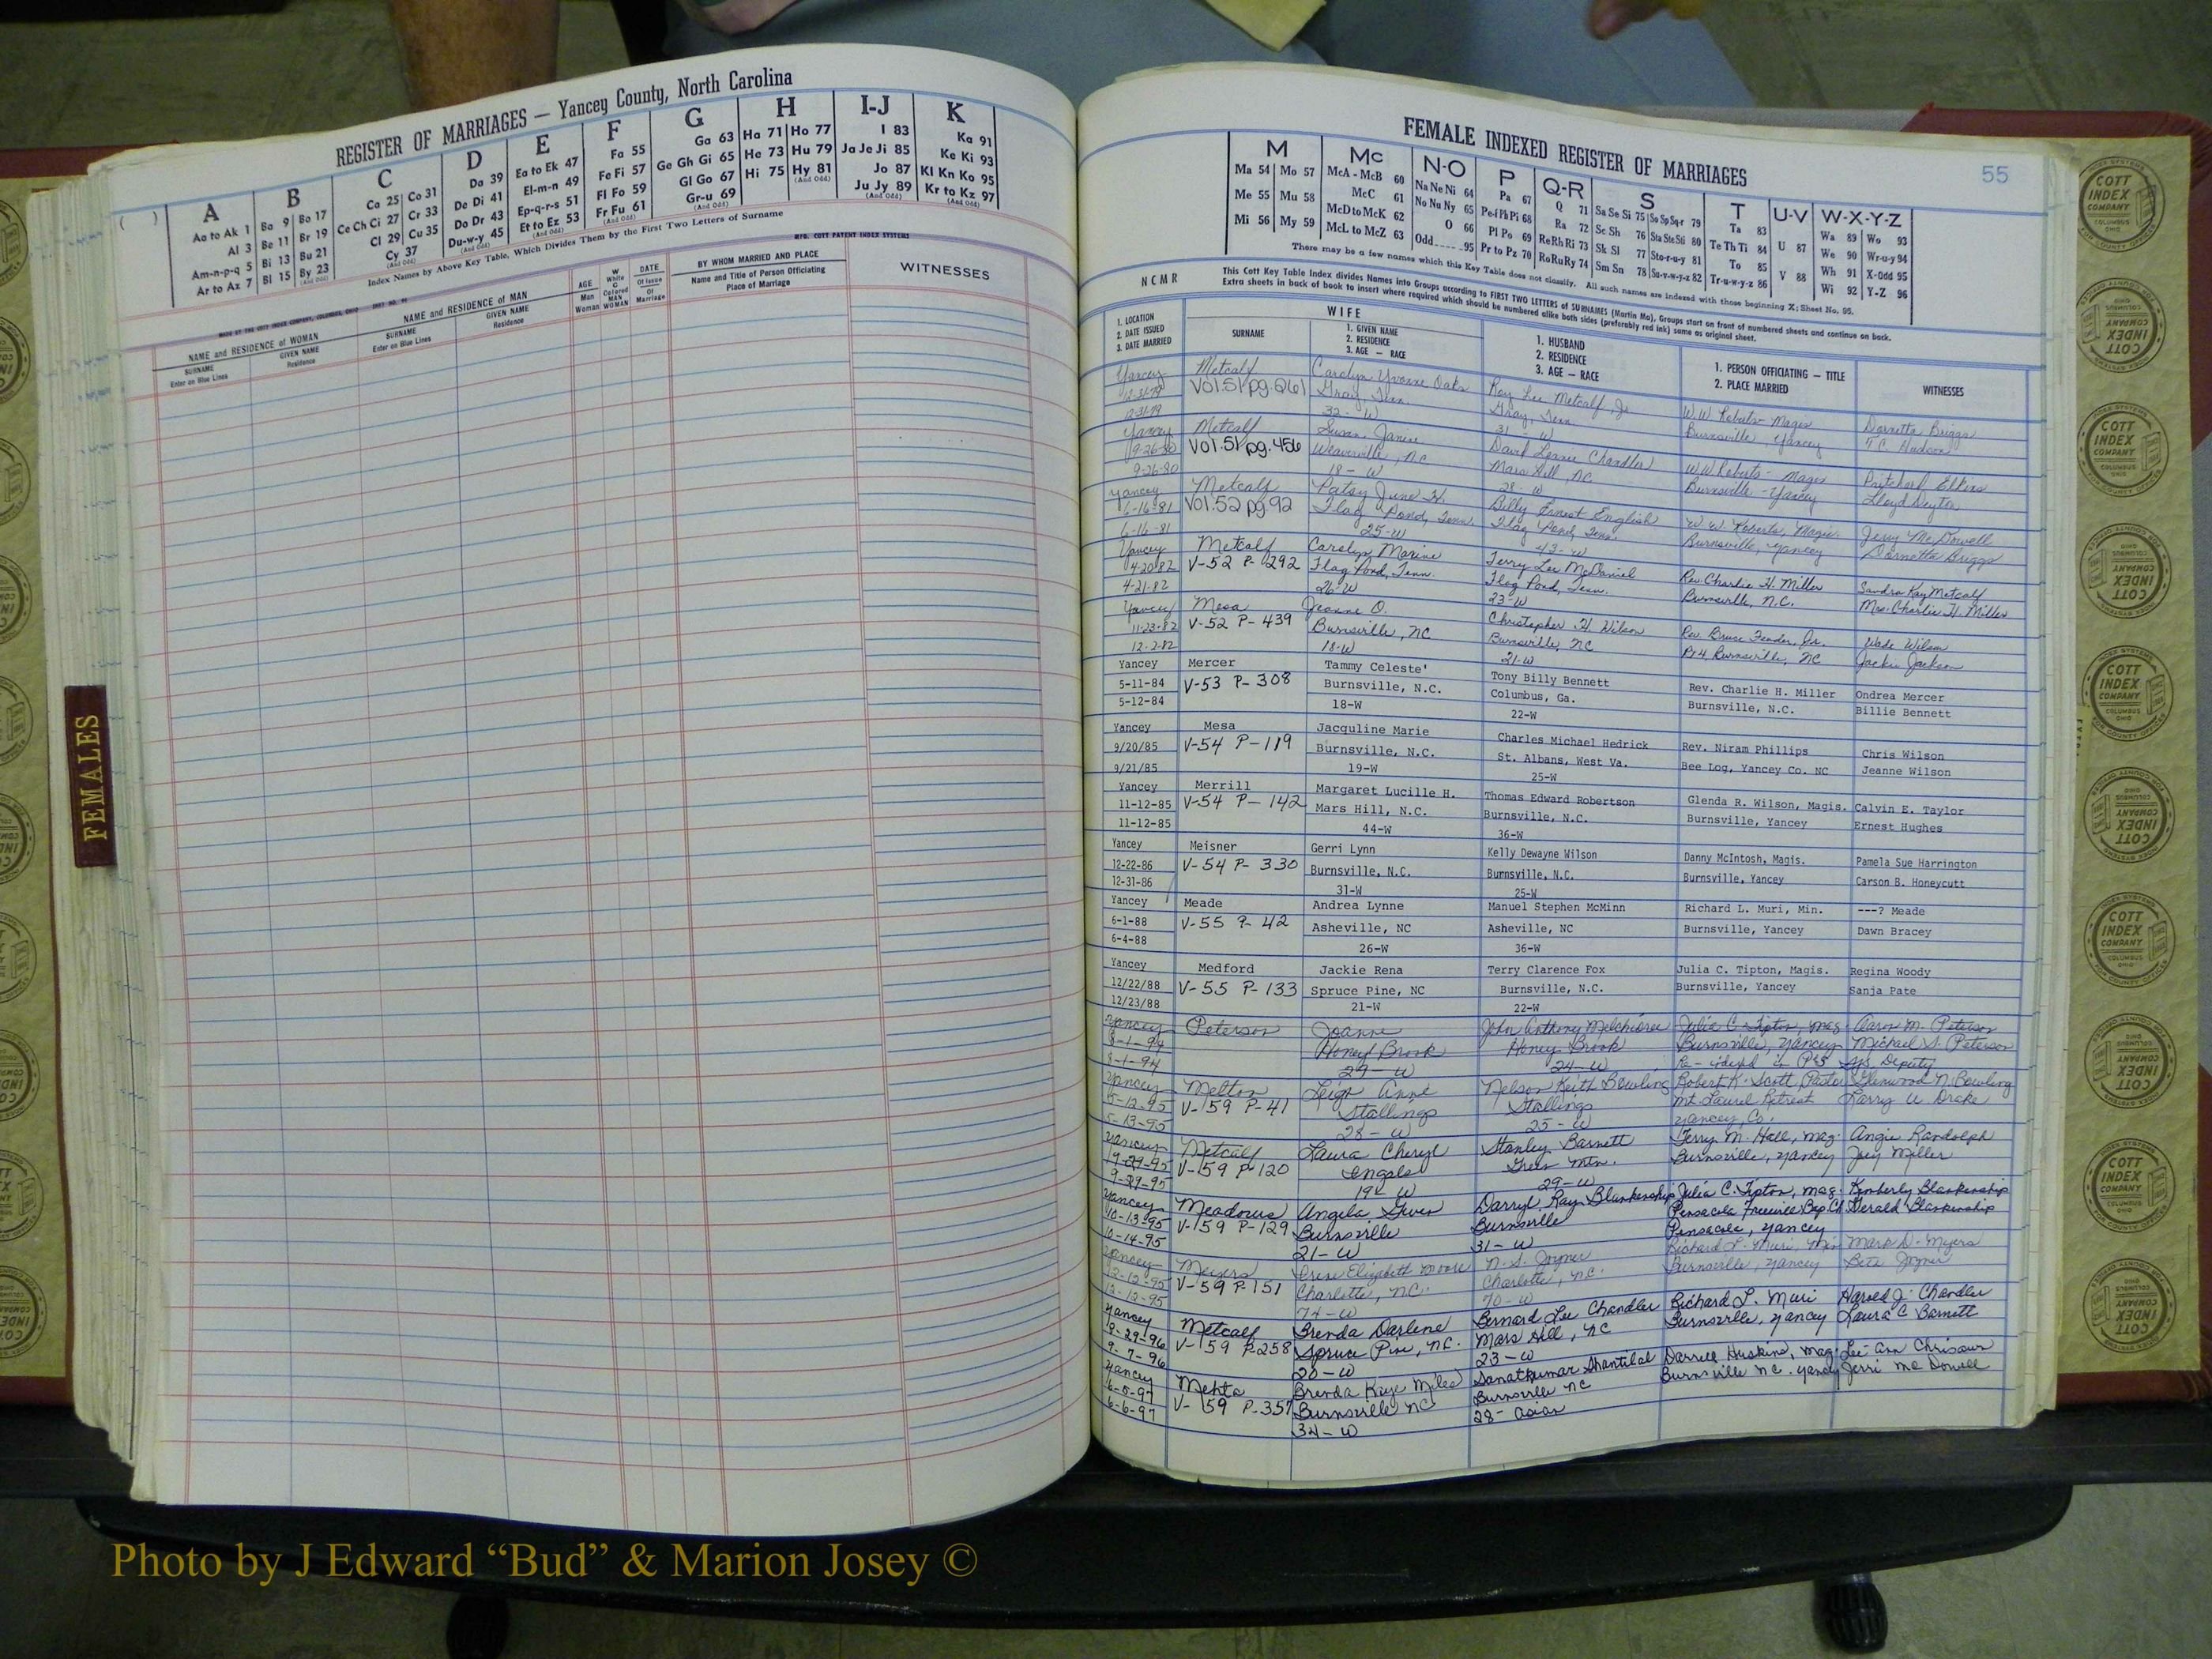 REGISTER OF MARRIAGES — Yancey County, North Carolina
A B C D E F G H I-J K
Aa to Ak 1
Al 3
Am-n-p-q 5
Ar to Az 7
Ba 9 Bo 17
Be 11 Br 19
Bi 13 Bu 21
Bl 15 By 23
(And Odd)
Ca 25 Co 31
Ce Ch Ci 27 Cr 33
Cl 29 Cu 35
Cy 37
(And Odd)
Da 39
De Di 41
Do Dr 43
Du-w-y 45
(And Odd)
Ea to Ek 47
El-m-n 49
Ep-q-r-s 51
Et to Ez 53
(And Odd)
Fa 55
Fe Fi 57
Fl Fo 59
Fr Fu 61
(And Odd)
Ga 63
Ge Gh Gi 65
Gl Go 67
Gr-u 69
(And Odd)
Ha 71 Ho 77
He 73 Hu 79
Hi 75 Hy 81
(And Odd)
I 83
Ja Je Ji 85
Jo 87
Ju Jy 89
(And Odd)
Ka 91
Ke Ki 93
Kl Kn Ko 95
Kr to Kz 97
(And Odd)
Index Names by Above Key Table, Which Divides Them by the First Two Letters of Surname
MFG. COTT PATENT INDEX SYSTEMS
MADE BY THE COTT INDEX COMPANY, COLUMBUS, OHIO
NAME and RESIDENCE of WOMAN
SURNAME
Enter on Blue Lines
GIVEN NAME
Residence
NAME and RESIDENCE of MAN
SURNAME
Enter on Blue Lines
GIVEN NAME
Residence
AGE
Man
Woman
W
White
C
Colored
MAN
WOMAN
DATE
Of Issue
Of
Marriage
BY WHOM MARRIED AND PLACE
Name and Title of Person Officiating
Place of Marriage
WITNESSES
FEMALES
FEMALE INDEXED REGISTER OF MARRIAGES
55
M Mc N-O P Q-R S T U-V W-X-Y-Z
Ma 54 Mo 57
Me 55 Mu 58
Mi 56 My 59
McA - McB 60
McC 61
McD to McK 62
McL to McZ 63
Na Ne Ni 64
No Nu Ny 65
O 66
Odd 95
Pa 67
Pe-f Ph Pi 68
Pl Po 69
Pr to Pz 70
Q 71
Ra 72
Re Rh Ri 73
Ro Ru Ry 74
Sa Se Si 75 So Sp Sq-r 79
Sc Sh 76 Sta Ste Sti 80
Sk Sl 77 Sto-r-u-y 81
Sm Sn 78 Su-v-w-y-z 82
Ta 83
Te Th Ti 84
To 85
Tr-u-w-y-z 86
U 87
V 88
Wa 89 Wo 93
We 90 Wr-u-y 94
Wh 91 X-Odd 95
Wi 92 Y-Z 96
There may be a few names which this Key Table does not classify. All such names are indexed with those beginning X; Sheet No. 95.
NCMR
This Cott Key Table Index divides Names into Groups according to FIRST TWO LETTERS of SURNAMES (Martin Ma), Groups start on front of numbered sheets and continue on back.
Extra sheets in back of book to insert where required which should be numbered alike both sides (preferably red ink) same as original sheet.
1. LOCATION
2. DATE ISSUED
3. DATE MARRIED
WIFE
SURNAME
1. GIVEN NAME
2. RESIDENCE
3. AGE — RACE
1. HUSBAND
2. RESIDENCE
3. AGE — RACE
1. PERSON OFFICIATING — TITLE
2. PLACE MARRIED
WITNESSES
Yancey Metcalf Carolyn Yvonne Oaks Roy Lee Metcalf, Jr. W.W. Roberts - Magis Darnetta Briggs
12-31-79 Vol.51 pg.261 Gray, Tenn Gray, Tenn Burnsville, Yancey T.C. Hudson
12-31-79 32 - W 31 - W
Yancey Metcalf Susan Janine David Lennie Chandler W.W. Roberts - Magis Pritchard Elkins
9-26-80 Vol.51 pg.456 Weaverville, NC Mars Hill, NC Burnsville - Yancey Lloyd Peyton
9-26-80 18 - W 28 - W
Yancey Metcalf Patsy June H. Billy Ernest English W. W. Roberts, Magis. Jerry McDowell
6-16-81 Vol.52 pg.92 Flag Pond, Tenn. Flag Pond, Tenn. Burnsville, Yancey Darnetta Briggs
6-16-81 25-W 43-W
Yancey Metcalf Carolyn Maxine Terry Lee McDaniel Rev. Charlie H. Miller Sandra Kay Metcalf
4-20-82 V-52 P-292 Flag Pond, Tenn. Flag Pond, Tenn. Burnsville, N.C. Mrs. Charlie H. Miller
4-21-82 26-W 23-W
Yancey Mesa Jeanne O. Christopher H. Wilson Rev. Bruce Fender, Jr. Wade Wilson
11-23-82 V-52 P-439 Burnsville, NC Burnsville, NC Rt 4, Burnsville, NC Jackie Jackson
12-2-82 18-W 21-W
Yancey Mercer Tammy Celeste' Tony Billy Bennett Rev. Charlie H. Miller Ondrea Mercer
5-11-84 V-53 P-308 Burnsville, N.C. Columbus, Ga. Burnsville, N.C. Billie Bennett
5-12-84 18-W 22-W
Yancey Mesa Jacquline Marie Charles Michael Hedrick Rev. Niram Phillips Chris Wilson
9/20/85 V-54 P-119 Burnsville, N.C. St. Albans, West Va. Bee Log, Yancey Co. NC Jeanne Wilson
9/21/85 19-W 25-W
Yancey Merrill Margaret Lucille H. Thomas Edward Robertson Glenda R. Wilson, Magis. Calvin E. Taylor
11-12-85 V-54 P-142 Mars Hill, N.C. Burnsville, N.C. Burnsville, Yancey Ernest Hughes
11-12-85 44-W 36-W
Yancey Meisner Gerri Lynn Kelly Dewayne Wilson Danny McIntosh, Magis. Pamela Sue Harrington
12-22-86 V-54 P-330 Burnsville, N.C. Burnsville, N.C. Burnsville, Yancey Carson B. Honeycutt
12-31-86 31-W 25-W
Yancey Meade Andrea Lynne Manuel Stephen McMinn Richard L. Muri, Min. ---? Meade
6-1-88 V-55 P-42 Asheville, NC Asheville, NC Burnsville, Yancey Dawn Bracey
6-4-88 26-W 36-W
Yancey Medford Jackie Rena Terry Clarence Fox Julia C. Tipton, Magis. Regina Woody
12/22/88 V-55 P-133 Spruce Pine, NC Burnsville, N.C. Burnsville, Yancey Sanja Pate
12/23/88 21-W 22-W
Yancey Peterson Joanne John Anthony Melchiorre Julia C. Tipton, mag Aaron M. Peterson
8-1-94 Honey Brook Honey Brook Burnsville, Yancey Michael S. Peterson
8-1-94 29-W 24-W Re-indexed Deputy
Yancey Melton Leigh Anne Nelson Keith Bowling Robert K. Scott, Pastor Glenwood N. Bowling
5-12-95 V-59 P-41 Stallings Stallings Mt. Laurel Retreat Larry W. Drake
5-13-95 28-W 25-W Yancey, Co.
Yancey Metcalf Laura Cheryl Stanley Barnett Terry M. Hall, mag. Angie Randolph
9-29-95 V-59 P-120 Engels Green Mtn. Burnsville, Yancey Joey Miller
9-29-95 19-W 29-W
Yancey Meadows Angela Gwen Darryl Ray Blankenship Julia C. Tipton, mag. Kimberly Blankenship
10-13-95 V-59 P-129 Burnsville Burnsville Pensacola Freewill Bap. Ch Gerald Blankenship
10-14-95 21-W 31-W Pensacola, Yancey
Yancey Meyers Irene Elizabeth Moore N. S. Joyner Richard L. Muri, Min Mark D. Myers
12-12-95 V-59 P-151 Charlotte, N.C. Charlotte, N.C. Burnsville, Yancey Bete Joyner
12-12-95 74-W 70-W
Yancey Metcalf Brenda Darlene Bernard Lee Chandler Richard L. Muri Harold J. Chandler
8-29-96 V-59 P-258 Spruce Pine, NC. Mars Hill, NC Burnsville, Yancey Laura C Barnett
9-7-96 20-W 23-W
Yancey Mehta Brenda Kaye Miles Sanatkumar Shantilal Darrell Huskins, mag. Lee-Ann Chrisawn
6-5-97 V-59 P-357 Burnsville NC Burnsville NC Burnsville NC. Yancey Jerri McDowell
6-6-97 34-W 28-Asian
COTT
INDEX
COMPANY
COLUMBUS
OHIO
Photo by J Edward “Bud” & Marion Josey ©